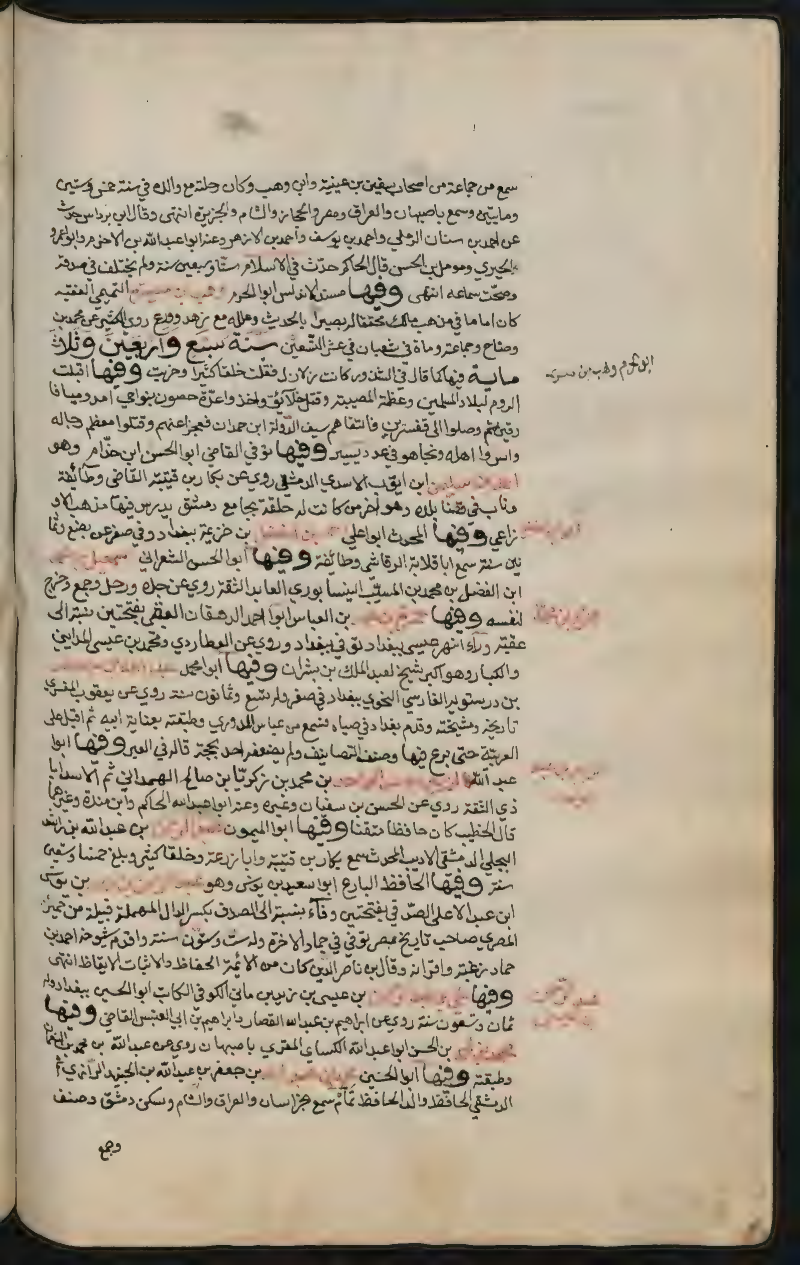 سمع من جماعة من اصحاب سفين بن عيينة وابن وهب وكان رحلته مع والده في سنة خمس وستين
ومايتين وسمع باصبهان والعراق ومصر والحجاز والشام والجزيرة انتهى وقال ابن برداس حدث
عن احمد بن سنان الرملي واحمد بن يوسف واحمد بن الازهر وعنه ابوا عبد الله بن الاخرم وابوا عمرو
الحيري ومومل بن الحسن قال الحاكم حدث في الاسلام ستا وسبعين سنة ولم يختلف في صدقه
وصحت سماعه انتهى وفيها مسند الاندلس ابوا الحزم وهب بن مسرة التميمي الفقيه
كان اماما في مذهب مالك محققا له بصيرا بالحديث وعلله مع زهد وورع روى الكثير عن محمد بن
وضاح وجماعة ومات في شعبان في عشر التسعين سنة سبع واربعين وثلاث
ماية فيها كما قال في الشذور كانت زلازل فقتلت خلقا كثيرا وخربت وفيها اقبلت
الروم لبلاد المسلمين وعظمت المصيبة وقتلوا خلائق واخذوا عدة حصون بنواحي امد وميافا
رقين ثم وصلوا الى قنسرين فالتقاهم سيف الدولة ابن حمدان فعجز عنهم وقتلوا معظم رجاله
واسروا اهله ونجا هو في عدد يسير وفيها توفي القاضي ابوا الحسن ابن حذام وهو
احمد بن سليمن ابن ايوب الاسدي الدمشقي روى عن بكار بن قتيبة القاضي وطائفة
وناب في قضا بلده وهو اخر من كانت له حلقة بجامع دمشق يدرس فيها مذهب الاو
زاعي وفيها المحدث ابوا علي بن خزيمة ببغداد في صفر عن بضع وثما
نين سنة سمع ابا قلابة الرقاشي وطائفة وفيها ابوا الحسن الشعراني
ابن الفضل بن محمد بن المسيب النيسابوري العابد الثقة روى عن جده ورحل وجمع وخرج
لنفسه وفيها حمزة بن محمد بن العباس ابوا احمد الدهقان العقبي بفتحتين نسبة الى
عقبة وراء نهر عيسى ببغداد توفي ببغداد وروى عن العطاردي ومحمد بن عيسى المدايني
والكبار وهو اكبر شيخ لعبد الملك بن بشران وفيها ابوا محمد عبد الله بن جعفر
بن درستويه الفارسي النحوي ببغداد في صفر وله تسع وثمانون سنة روى عن يعقوب الفسوي
تاريخه ومشيخته وقدم بغداد في صباه فسمع من عباس الدوري وطبقته بعناية ابيه ثم اقبل على
العربية حتى برع فيها وصنف التصانيف ولم يضعفه احد بحجة قاله في العبر وفيها ابوا
عبد الله الزبير بن عبد الواحد بن محمد بن زكريا بن صالح الهمداني ثم الاسداباذي
ذي الثقة روى عن الحسن بن سفيان وغيره وعنه ابوا عبد الله الحاكم وابن مندة وغيرهما
قال الخطيب كان حافظا متقنا وفيها ابوا الميمون عبد الرحمن بن عبد الله بن راشد
البجلي الدمشقي الاديب المحدث سمع بكار بن قتيبة وابا زرعة وخلقا كثيرا وبلغ خمسا وتسعين
سنة وفيها الحافظ البارع ابوا سعيد بن يونس وهو عبد الرحمن بن احمد بن يونس
ابن عبد الاعلى الصدفي بفتحتين وفآء نسبة الى الصدف بكسر الدال المهملة قبيلة من حمير
المصري صاحب تاريخ مصر توفي في جماد الاخرة وله ست وستون سنة واقدم شيوخه احمد بن
حماد زغبة واقرانه وقال ابن ناصر الدين كان من الائمة الحفاظ والاثبات الايقاظ انتهى
وفيها علي بن عبد الرحمن بن عيسى بن زيد بن ماتي الكوفي الكاتب ابوا الحسين ببغداد وله
ثمان وتسعون سنة روى عن ابراهيم بن عبد الله القصار وابراهيم بن ابي العنبس القاضي وفيها
بن الحسن ابوا عبد الله الكسائي المقري باصبهان روى عن عبد الله بن محمد بن النعمان
وطبقته وفيها ابوا الحسين محمد بن عبد الله بن جعفر بن عبد الله بن الجنيد الرازي ثم
الدمشقي الحافظ والد الحافظ تمام سمع بخراسان والعراق والشام وسكن دمشق وصنف
وجمع
ابوالحزم وهب بن مسرة